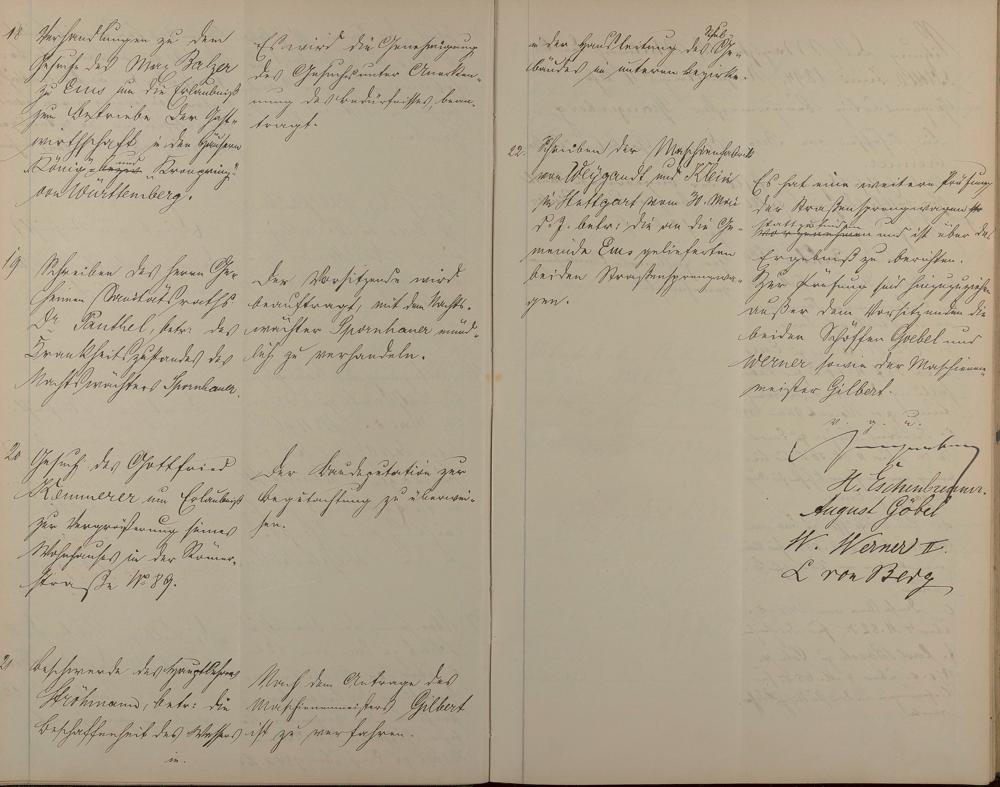 18 Verhandlungen zu dem
Gesuche des Max Balzer
zu Ems um die Erlaubniß
zum Betriebe der Gast-
wirthschaft in den Häusern
„König" bezw. und „Kronprinz"
von Württemberg.
Es wird die Genehmigung
des Gesuches unter Anerken-
nung des Bedürfnisses, bean-
tragt.
19 Schreiben des Herrn Ge-
heimen Sanitätsraths
Dr Panthel, betr: des
Krankheitszustandes des
Nachtswächters Spornhauer.
Der Vorsitzende wird
beauftragt, mit dem Nachts-
wächter Spornhauer münd-
lich zu verhandeln.
20 Gesuch des Gottfried
Kemmerer um Erlaubniß
zur Vergrößerung seines
Wohnhauses in der Römer-
straße No 89.
Der Baudeputation zur
Begutachtung zu überwei-
sen.
21 Beschwerde des Hauptlehrers
Ströhmann, betr: die
Beschaffenheit des Wassers
in
Nach dem Antrage des
Maschinenmeisters Gilbert
ist zu verfahren.
in der Hausleitung des Schul Ge-
bäudes im unteren Bezirke.
22. Schreiben der Maschinenfabrik
von Weygandt und Klein
in Stuttgart vom 30. Mai
d. J. betr: die an die Ge-
meinde Ems gelieferten
beiden Straßensprengwa-
gen.
Es hat eine weitere Prüfung
der Straßensprengwagen
stattzufinden
vorzunehmen und ist über das
Ergebniß zu berichten.
Zur Prüfung sind hinzuzuziehen
außer dem Vorsitzenden die
beiden Schöffen Goebel und
Werner sowie der Maschinen-
meister Gilbert.
v. g. u.
H. Eschenbrenner.
August Göbel
W. Werner II.
L von Berg